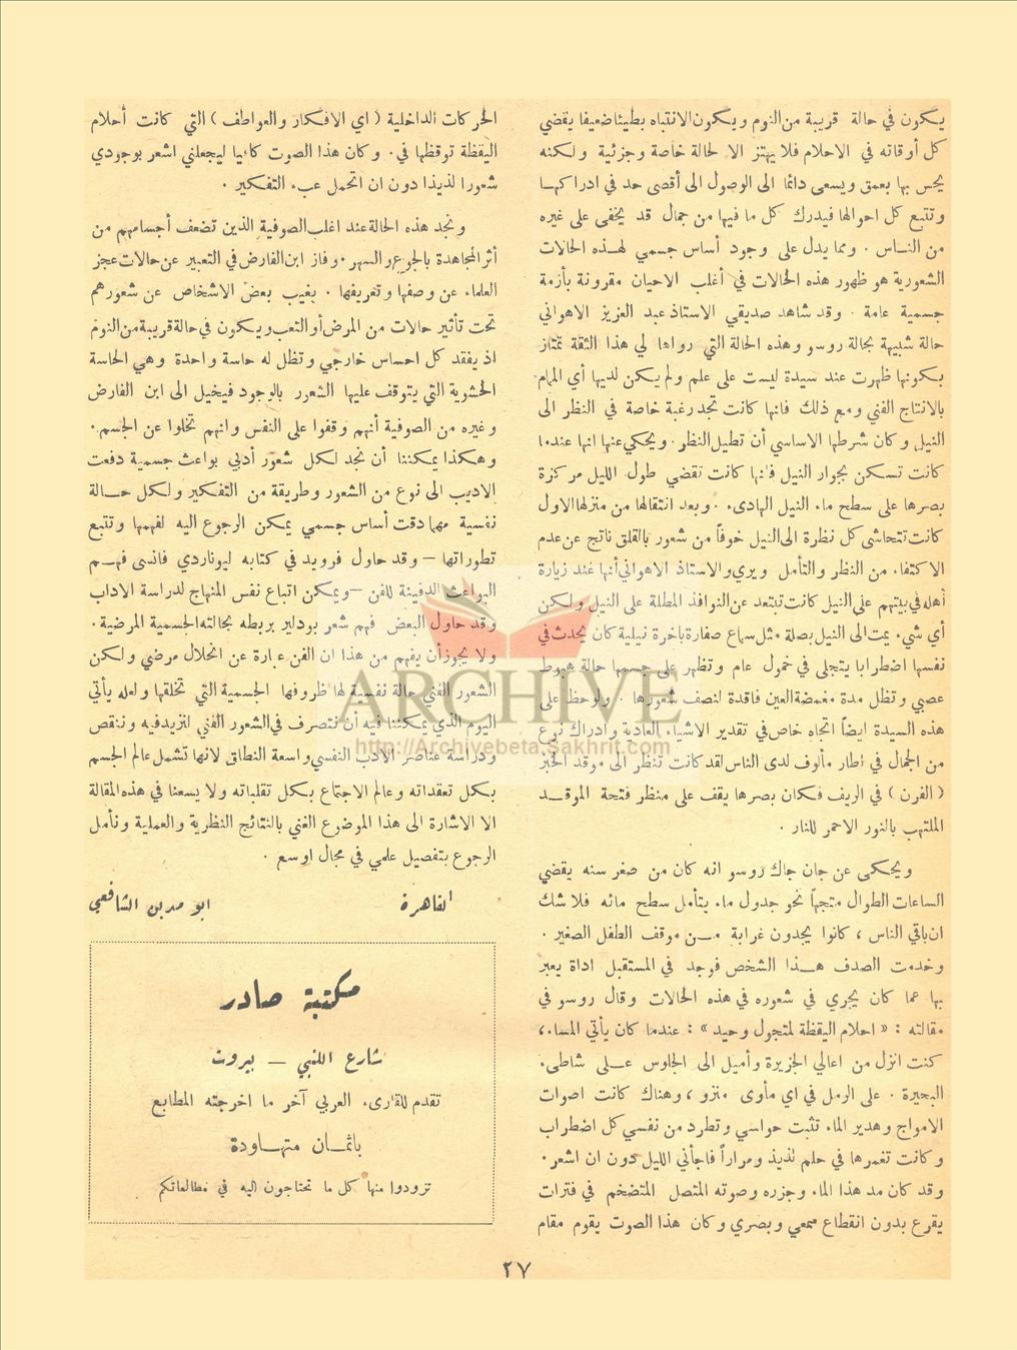 يكون في حالة قريبة من النوم ويكون الانتباه بطيئا ضعيفا يقضي
كل أوقاته في الاحلام فلا يهتز الا لحالة خاصة وجزئية ولكنه
يحس بها بعمق ويسعى دائما الى الوصول الى أقصى حد في ادراكها
وتتبع كل احوالها فيدرك كل ما فيها من جمال قد يخفى على غيره
من النـاس . ومما يدل على وجود أساس جسمي لهـذه الحالات
الشعورية هو ظهور هذه الحالات في أغلب الاحيان مقرونة بأزمة
جسمية عامة . وقد شاهد صديقي الاستاذ عبد العزيز الاهواني
حالة شبيهة بحالة روسو وهذه الحالة التي رواها لي هذا الثقة تمتاز
بكونها ظهرت عند سيدة ليست على علم ولم يكن لديها أي المام
بالانتاج الفني ومع ذلك فانها كانت تجد رغبة خاصة في النظر الى
النيل وكان شرطها الاساسي أن تطيل النظر . ويحكي عنها انها عندما
كانت تسكن بجوار النيل فانها كانت تقضي طول الليل مركزة
بصرها على سطح ماء النيل الهادىء . وبعد انتقالها من منزلها الاول
كانت تتحاشى كل نظرة الى النيل خوفاً من شعور بالقلق ناتج عن عدم
الاكتفاء من النظر والتأمل ويرى والاستاذ الاهواني أنها عند زيارة
أهله في بيتهم على النيل كانت تبتعد عن النوافذ المطلة على النيل ولكن
أي شيء يمت الى النيل بصلة مثل سماع صفارة باخرة نيلية كان يحدث في
نفسها اضطرابا يتجلى في خمول عام وتظهر على جسمها حالة هبوط
عصبي وتظل مدة مغمضة العين فاقدة لنصف شعورها . ولوحظ على
هذه السيدة ايضاً اتجاه خاص في تقدير الاشياء العادية وادراك نوع
من الجمال في اطار مألوف لدى الناس لقد كانت تنظر الى موقد الخبز
( الفرن ) في الريف فكان بصرها يقف على منظر فتحة الموقـد
الملتهب بالنور الاحمر للنار .
ويحكى عن جان جاك روسو انه كان من صغر سنه يقضي
الساعات الطوال متجهاً نحو جدول ماء يتأمل سطح مائه فلا شك
ان باقي الناس ، كانوا يجدون غرابة مـن موقف الطفل الصغير .
وخدمت الصدف هـذا الشخص فوجد في المستقبل اداة يعبر
بها عما كان يجري في شعوره في هذه الحالات وقال روسو في
مقالته : « احلام اليقظة لمتجول وحيد » : عندما كان يأتي المساء ،
كنت انزل من اعالي الجزيرة وأميل الى الجلوس عـلى شاطىء
البحيرة . على الرمل في اي مأوى منزو ، وهناك كانت اصوات
الامواج وهدير الماء تثبت حواسي وتطرد من نفسي كل اضطراب
وكانت تغمرها في حلم لذيذ ومراراً فاجأني الليل دون ان اشعر .
وقد كان مد هذا الماء وجزره وصوته المتصل المتضخم في فترات
يقرع بدون انقطاع سمعي وبصري وكان هذا الصوت يقوم مقام
الحركات الداخلية ( اي الافكار والعواطف ) التي كانت أحلام
اليقظة توقظها في . وكان هذا الصوت كافيا ليجعلني اشعر بوجودي
شعورا لذيذا دون ان اتحمل عبء التفكير .
ونجد هذه الحالة عند اغلب الصوفية الذين تضعف أجسامهم من
أثر المجاهدة بالجوع والسهر . وفاز ابن الفارض في التعبير عن حالات عجز
العلماء عن وصفها وتعريفها . يغيب بعض الاشخاص عن شعورهم
تحت تأثير حالات من المرض أو التعب ويكون في حالة قريبة من النوم
اذ يفقد كل احساس خارجي وتظل له حاسة واحدة وهي الحاسة
الحشوية التي يتوقف عليها الشعور بالوجود فيخيل الى ابن الفارض
وغيره من الصوفية أنهم وقفوا على النفس وانهم تخلوا عن الجسم .
وهكذا يمكننا أن نجد لكل شعور أدبي بواعث جسمية دفعت
الاديب الى نوع من الشعور وطريقة من التفكير ولكل حـالة
نفسية مهما دقت أساس جسمي يمكن الرجوع اليه لفهمها وتتبع
تطوراتها — وقد حاول فرويد في كتابه ليوناردي فانسى فهـم
البواعث الدفينة للفن — ويمكن اتباع نفس المنهاج لدراسة الاداب
وقد حاول البعض فهم شعر بودلير بربطه بحالته الجسمية المرضية .
ولا يجوز أن يفهم من هذا ان الفن عبارة عن انحلال مرضي ولكن
الشعور الفني حالة نفسية لها ظروفها الجسمية التي تخلقها ولعله يأتي
اليوم الذي يمكننا فيه أن نتصرف في الشعور الفني لنزيد فيه وننقص
ودراسة عناصر الادب النفسي واسعة النطاق لانها تشمل عالم الجسم
بكل تعقداته وعالم الاجتماع بكل تقلباته ولا يسعنا في هذه المقالة
الا الاشارة الى هذا الموضوع الغني بالنتائج النظرية والعملية ونأمل
الرجوع بتفصيل علمي في مجال اوسع .
القاهرة ابو مدين الشافعي
مكتبة صادر
شارع اللنبي — بيروت
تقدم للقارىء العربي آخر ما اخرجته المطابع
باثمـان متهـاودة
تزودوا منها كل ما تحتاجون اليه في مطالعاتكم
٢٧
ARCHIVE
http://Archivebeta.Sakhrit.com